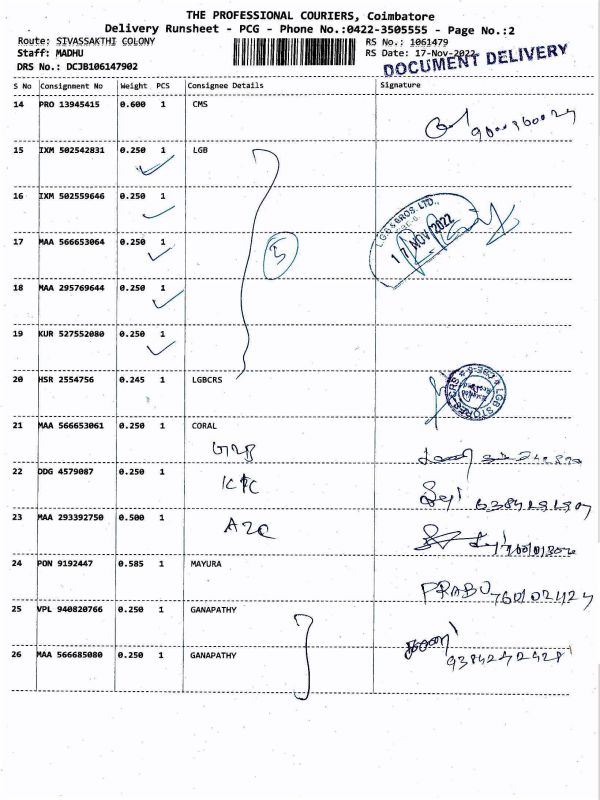 THE PROFESSIONAL COURIERS, Coimbatore
Delivery Runsheet - PCG - Phone No.:0422-3505555 - Page No.:2
Route: SIVASSAKTHI COLONY RS No.: 1061479
Staff: MADHU RS Date: 17-Nov-2022
DRS No.: DCJB106147902 DOCUMENT DELIVERY
S No Consignment No Weight PCS Consignee Details Signature
14 PRO 13945415 0.600 1 CMS
15 IXM 502542831 0.250 1 LGB
16 IXM 502559646 0.250 1
L.G.B & BROS. LTD.,
17 MAA 566653064 0.250 1 5 17 NOV 2022
18 MAA 295769644 0.250 1
19 KUR 527552080 0.250 1
20 HSR 2554756 0.245 1 LGBCRS LGB STORES
21 MAA 566653061 0.250 1 CORAL
22 DDG 4579087 0.250 1
23 MAA 293392750 0.500 1
24 PON 9192447 0.585 1 MAYURA
PRABU
25 VPL 940820766 0.250 1 GANAPATHY
26 MAA 566685080 0.250 1 GANAPATHY